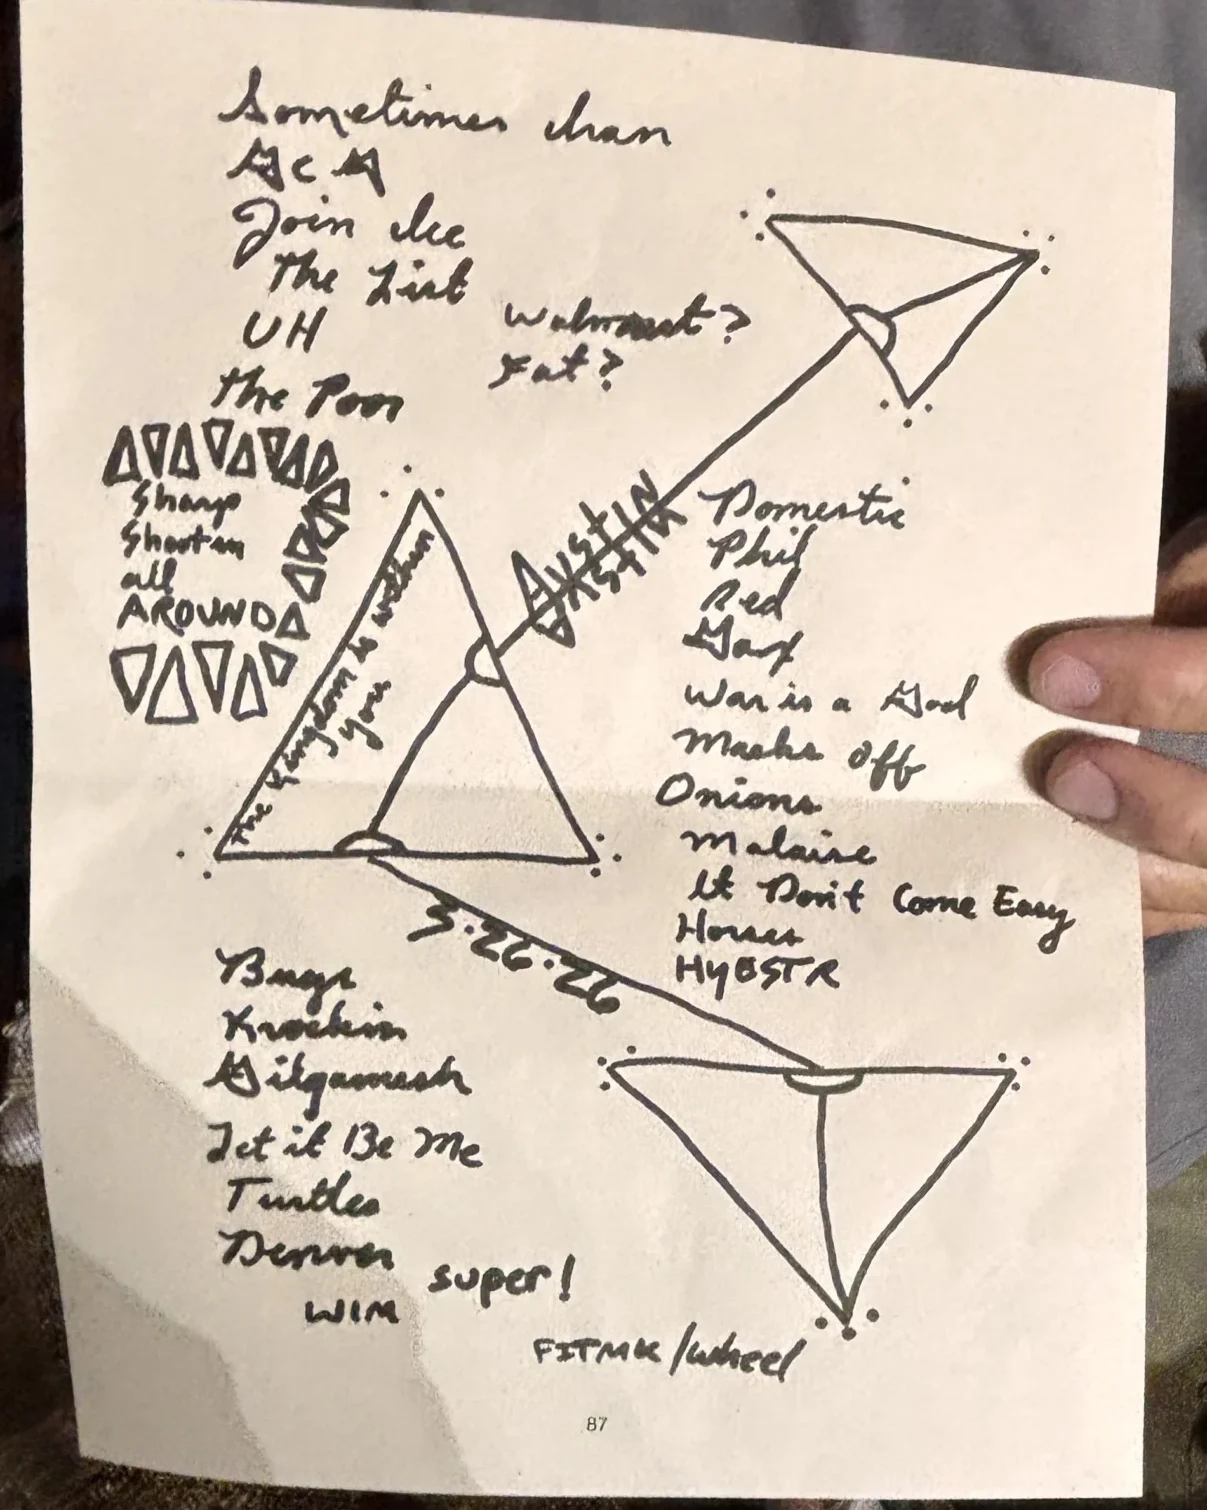 Sometimes
Join
The List
UH
Walmart?
Fat?
The Poor
Sharp
Shootin
all
AROUND
The Kingdom is within
you
AUSTIN
AUSTIN
Domestic
Phil
Red
War is a God
Masks Off
Onions
Malaise
It Don't Come Easy
Horses
HyBSTR
5.22.22
Bugs
Krockin
Gilgamesh
Let it Be Me
Turtles
Denver
WIM
super!
FITMK/wheel
87